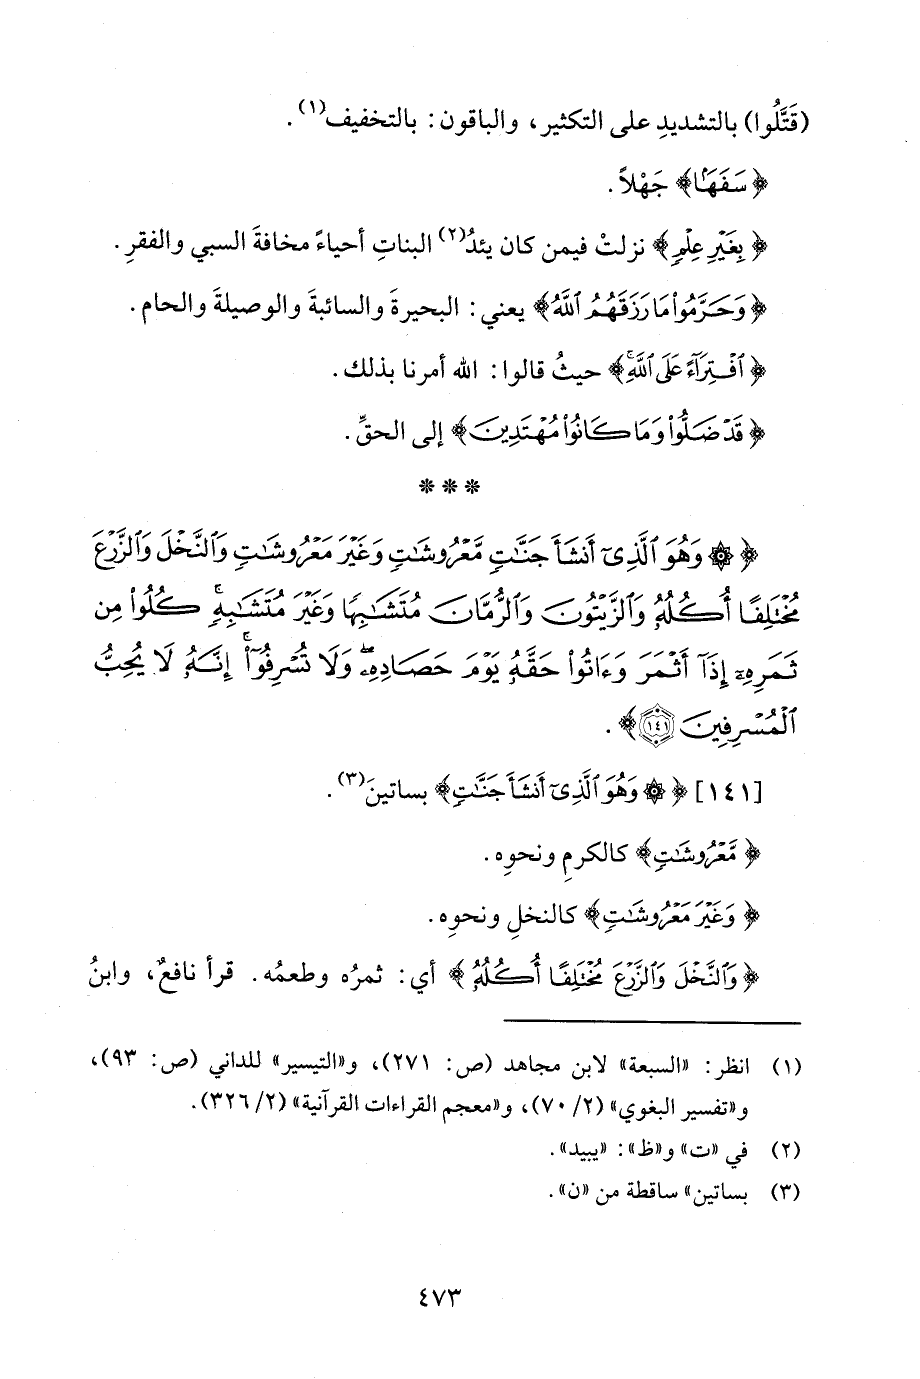 (قَتَّلُوا) بالتشديدِ على التكثير، والباقون: بالتخفيف(١).
﴿سَفَهَۢا﴾ جَهْلاً.
﴿بِغَيْرِ عِلْمٍ﴾ نزلتْ فيمن كان يئدُ(٢) البناتِ أحياءً مخافةَ السبي والفقرِ.
﴿وَحَرَّمُوا۟ مَا رَزَقَهُمُ ٱللَّهُ﴾ يعني: البحيرةَ والسائبةَ والوصيلةَ والحام.
﴿ٱفْتِرَآءً عَلَى ٱللَّهِۚ﴾ حيثُ قالوا: الله أمرنا بذلك.
﴿قَدْ ضَلُّوا۟ وَمَا كَانُوا۟ مُهْتَدِينَ﴾ إلى الحقِّ.
* * *
﴿۞ وَهُوَ ٱلَّذِىٓ أَنشَأَ جَنَّـٰتٍ مَّعْرُوشَـٰتٍ وَغَيْرَ مَعْرُوشَـٰتٍ وَٱلنَّخْلَ وَٱلزَّرْعَ
مُخْتَلِفًا أُكُلُهُۥ وَٱلزَّيْتُونَ وَٱلرُّمَّانَ مُتَشَـٰبِهًا وَغَيْرَ مُتَشَـٰبِهٍۚ كُلُوا۟ مِن
ثَمَرِهِۦٓ إِذَآ أَثْمَرَ وَءَاتُوا۟ حَقَّهُۥ يَوْمَ حَصَادِهِۦۖ وَلَا تُسْرِفُوٓا۟ۚ إِنَّهُۥ لَا يُحِبُّ
ٱلْمُسْرِفِينَ ١٤١﴾.
[١٤١] ﴿۞ وَهُوَ ٱلَّذِىٓ أَنشَأَ جَنَّـٰتٍ﴾ بساتينَ(٣).
﴿مَّعْرُوشَـٰتٍ﴾ كالكرمِ ونحوِه.
﴿وَغَيْرَ مَعْرُوشَـٰتٍ﴾ كالنخلِ ونحوِه.
﴿وَٱلنَّخْلَ وَٱلزَّرْعَ مُخْتَلِفًا أُكُلُهُۥ﴾ أي: ثمرُه وطعمُه. قرأ نافعٌ، وابنُ
(١) انظر: «السبعة» لابن مجاهد (ص: ٢٧١)، و«التيسير» للداني (ص: ٩٣)،
و«تفسير البغوي» (٢/ ٧٠)، و«معجم القراءات القرآنية» (٢/ ٣٢٦).
(٢) في «ت» و«ظ»: «يبيد».
(٣) بساتين» ساقطة من «ن».
٤٧٣